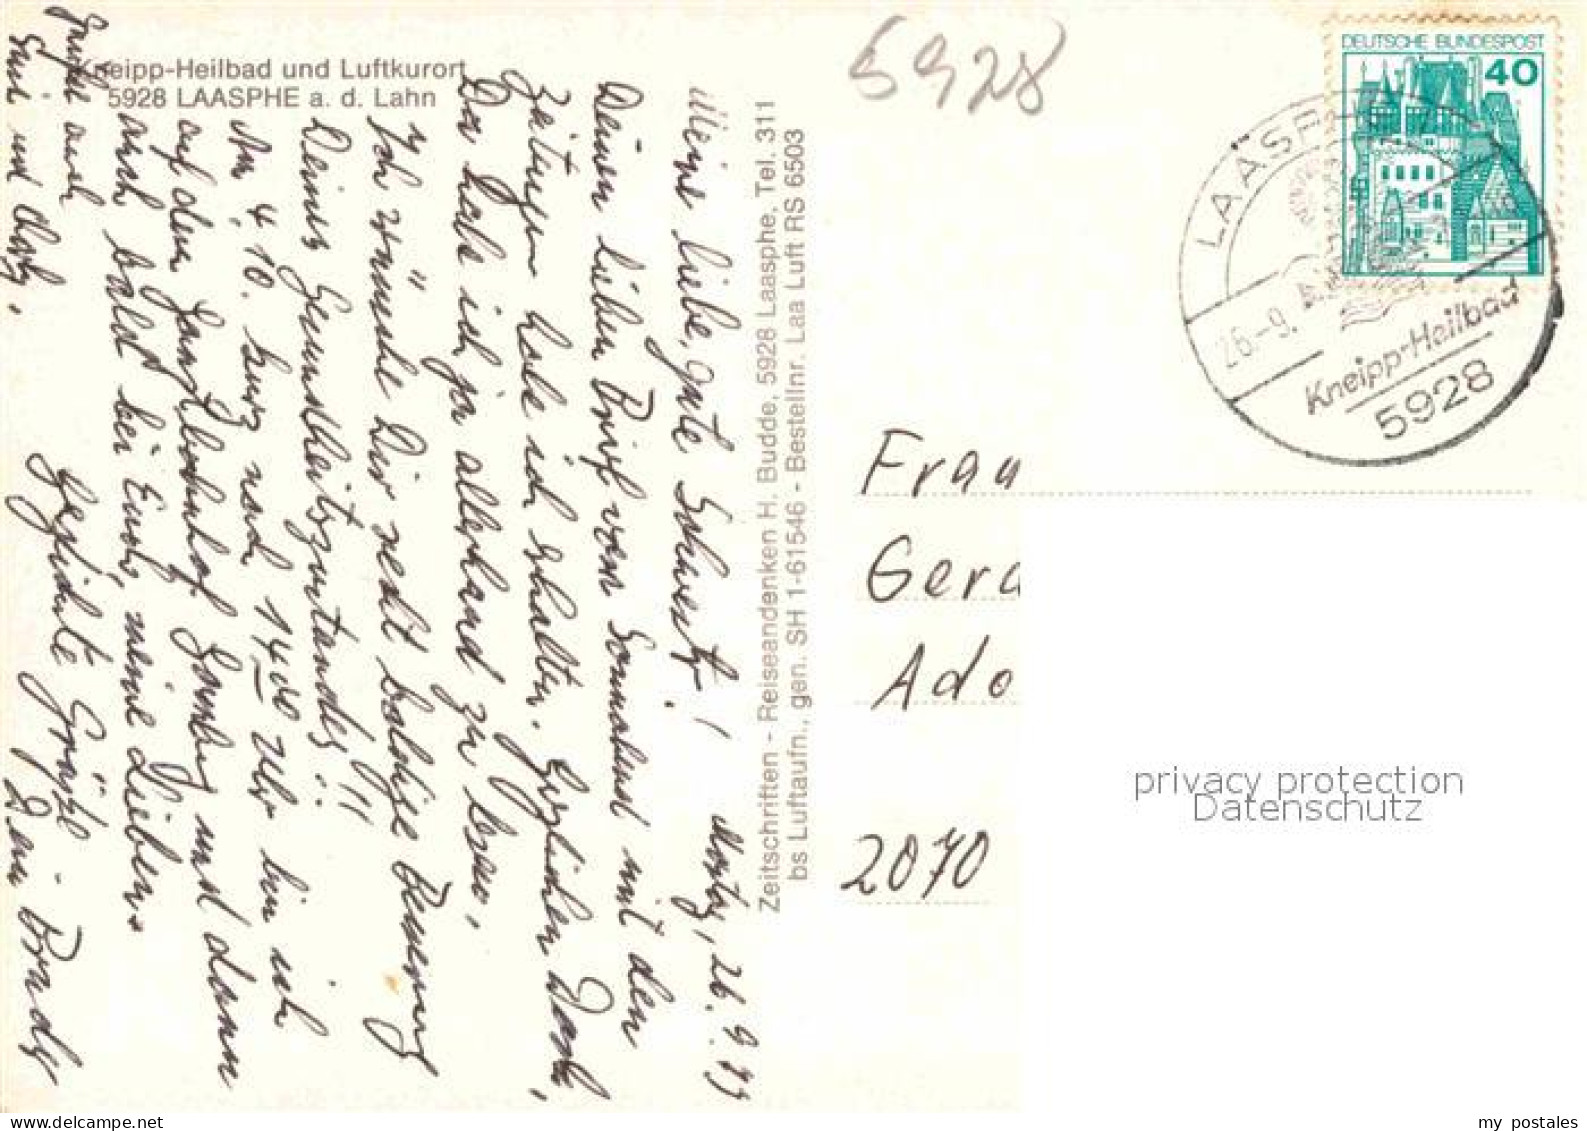 Kneipp-Heilbad und Luftkurort
5928 LAASPHE a. d. Lahn
5928
DEUTSCHE BUNDESPOST
40
LAASP
26.-9.
Kneipp-Heilbad
5928
Montag, 26. 9. 77
Meine liebe, gute Schwester!
Deinen lieben Brief vom Sonnabend mit den
Zeitungen habe ich erhalten. Herzlichen Dank,
Da habe ich ja allerhand zu lesen,
Ich wünsche Dir recht baldige Besserung
Deines Gesundheitszustandes!!!
Am 4. 10. kurz nach 14.00 Uhr bin ich
auf dem Hauptbahnhof Hamburg und dann
auch bald bei Euch, meine Lieben.
Herzliche Grüße Dein Bruder
auch
und
Zeitschriften - Reiseandenken H. Budde, 5928 Laasphe, Tel. 311
bs Luftaufn., gen. SH 1-61546 - Bestellnr. Laa Luft RS 6503
Frau
Gerd
Ado
2070
privacy protection
Datenschutz
my postales